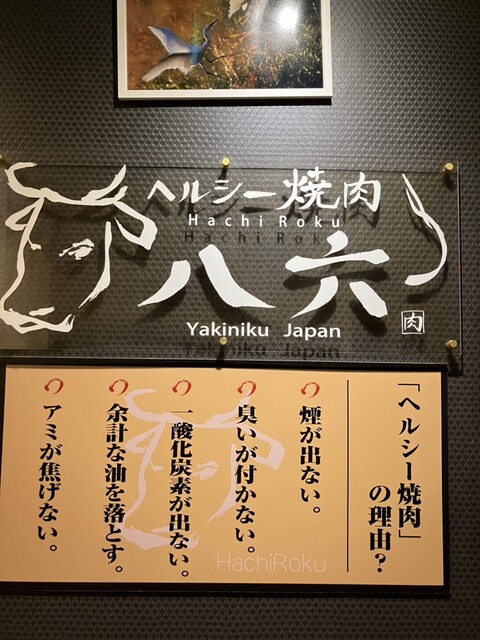 ヘルシー焼肉
Hachi Roku
八六
Yakiniku Japan
肉
「ヘルシー焼肉」
の理由？
煙が出ない。
臭いが付かない。
一酸化炭素が出ない。
余計な油を落とす。
アミが焦げない。
HachiRoku